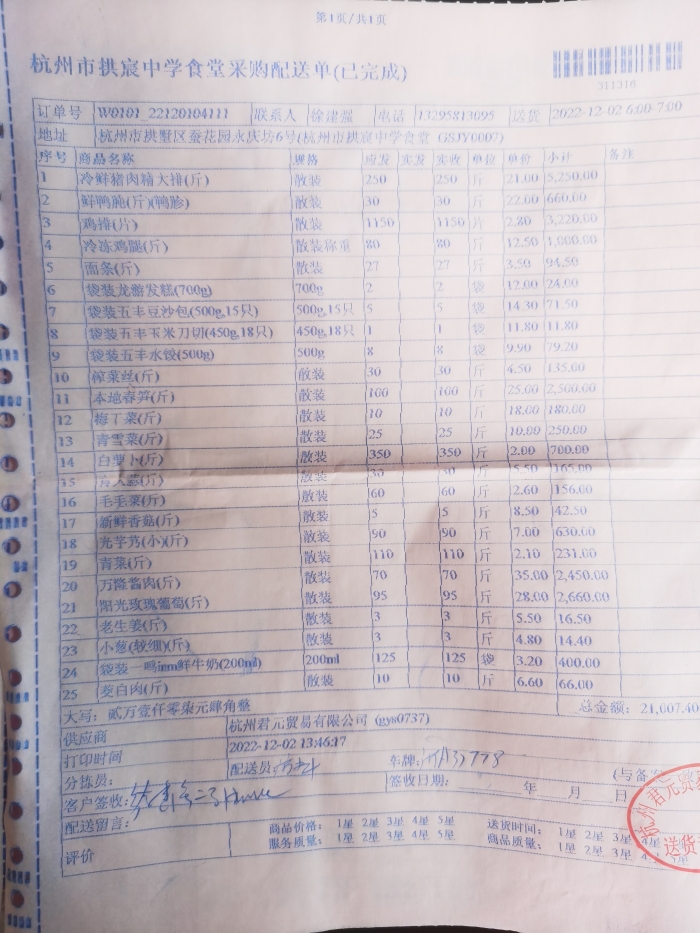 第1页/共1页
杭州市拱宸中学食堂采购配送单(已完成)
311316
订单号 W0101_22120104111 联系人 徐建强 电话 13295813095 送货 2022-12-02 6:00-7:00
地址 杭州市拱墅区蚕花园永庆坊6号(杭州市拱宸中学食堂 GSJY0007)
序号 商品名称 规格 应发 实发 实收 单位 单价 小计 备注
1 冷鲜猪肉精大排(斤) 散装 250 250 斤 21.00 5,250.00
2 鲜鸭肫(斤)(鸭胗) 散装 30 30 斤 22.00 660.00
3 鸡排(片) 散装 1150 1150 片 2.80 3,220.00
4 冷冻鸡腿(斤) 散装称重 80 80 斤 12.50 1,000.00
5 面条(斤) 散装 27 27 斤 3.50 94.50
6 袋装龙游发糕(700g) 700g 2 2 袋 12.00 24.00
7 袋装五丰豆沙包(500g,15只) 500g,15只 5 5 袋 14.30 71.50
8 袋装五丰玉米刀切(450g,18只) 450g,18只 1 1 袋 11.80 11.80
9 袋装五丰水饺(500g) 500g 8 8 袋 9.90 79.20
10 榨菜丝(斤) 散装 30 30 斤 4.50 135.00
11 本地春笋(斤) 散装 100 100 斤 25.00 2,500.00
12 梅丁菜(斤) 散装 10 10 斤 18.00 180.00
13 青雪菜(斤) 散装 25 25 斤 10.00 250.00
14 白萝卜(斤) 散装 350 350 斤 2.00 700.00
15 青大蒜(斤) 散装 30 30 斤 5.50 165.00
16 毛毛菜(斤) 散装 60 60 斤 2.60 156.00
17 新鲜香菇(斤) 散装 5 5 斤 8.50 42.50
18 光芋艿(小)(斤) 散装 90 90 斤 7.00 630.00
19 青菜(斤) 散装 110 110 斤 2.10 231.00
20 万隆酱肉(斤) 散装 70 70 斤 35.00 2,450.00
21 阳光玫瑰葡萄(斤) 散装 95 95 斤 28.00 2,660.00
22 老生姜(斤) 散装 3 3 斤 5.50 16.50
23 小葱(较细)(斤) 散装 3 3 斤 4.80 14.40
24 袋装一鸣inm鲜牛奶(200ml) 200ml 125 125 袋 3.20 400.00
25 茭白肉(斤) 散装 10 10 斤 6.60 66.00
大写: 贰万壹仟零柒元肆角整 总金额: 21,007.40
供应商 杭州君元贸易有限公司 (gys0737)
打印时间 2022-12-02 13:46:17
分拣员: 配送员: 车牌: (与备
客户签收: 签收日期: 年 月 日
配送留言:
评价 商品价格: 1星 2星 3星 4星 5星 送货时间: 1星 2星 3星 4星
服务质量: 1星 2星 3星 4星 5星 商品质量: 1星 2星 3星 4星 5星
杭州君元贸
送货